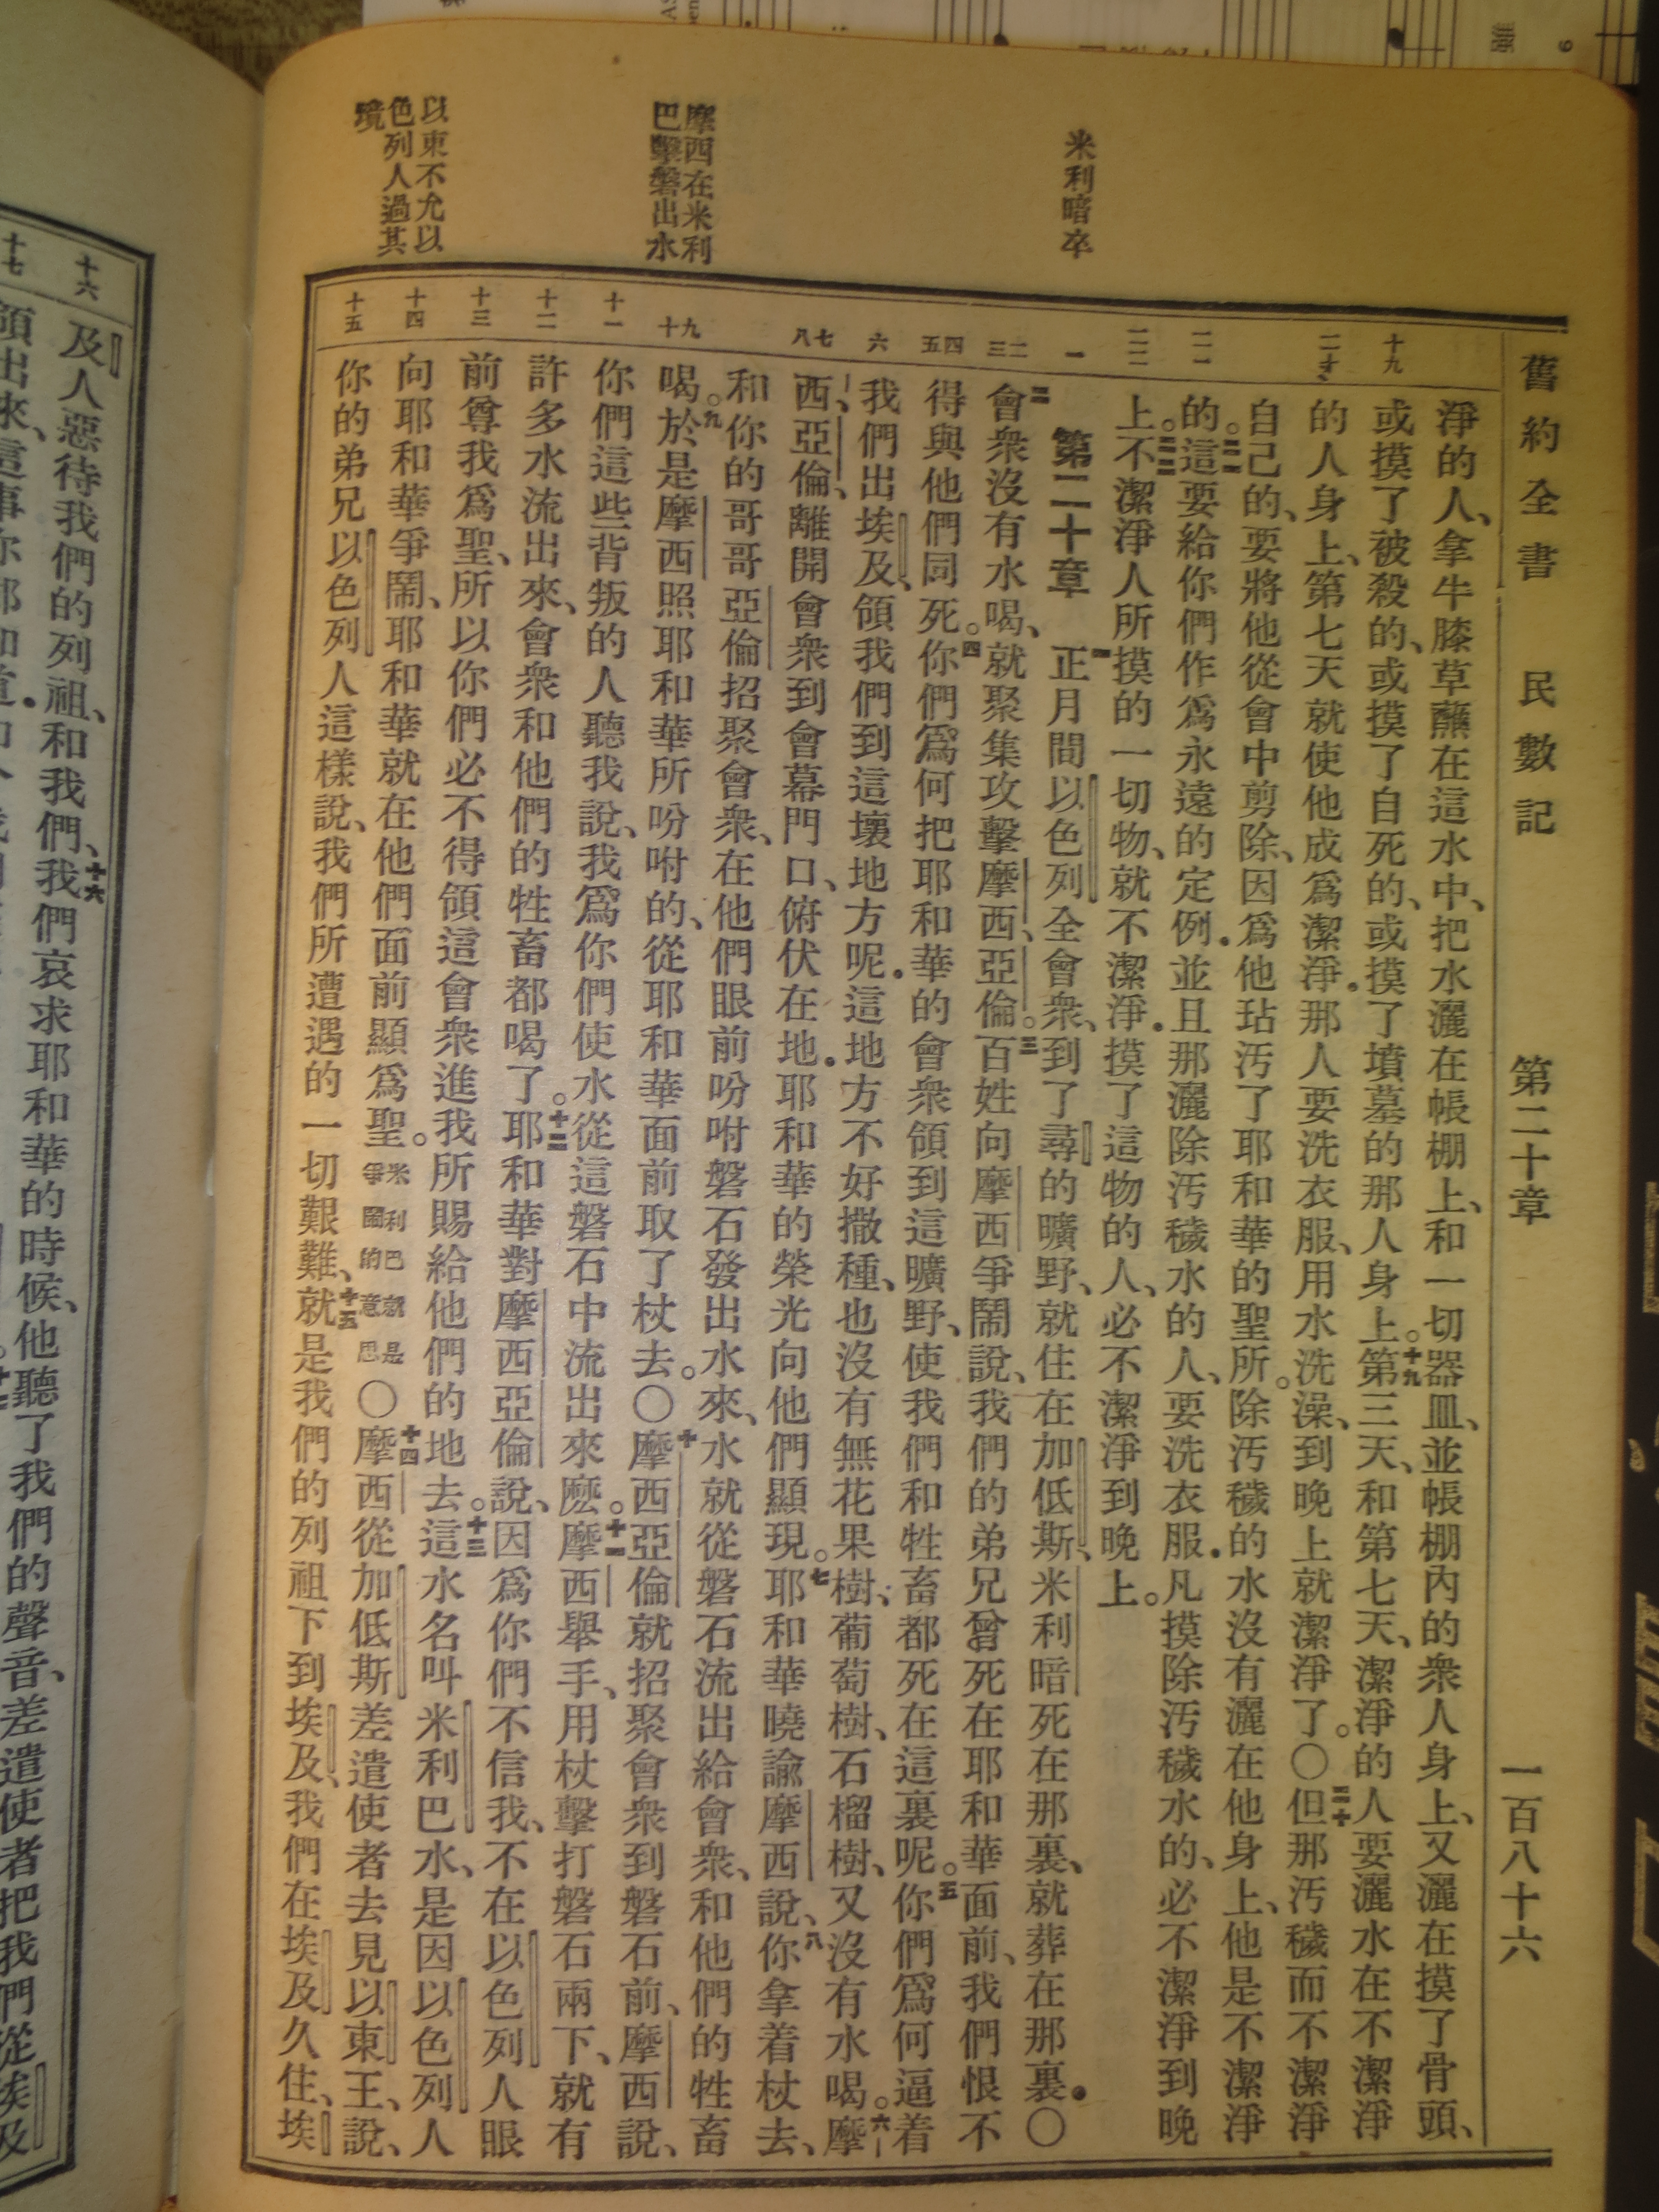 舊約全書 民數記 第二十章 一百八十六
米利暗卒
摩西在米利
巴擊磐出水
以東不允以
色列人過其
境
淨的人、拿牛膝草蘸在這水中、把水灑在帳棚上、和一切器皿、並帳棚內的衆人身上、又灑在摸了骨頭、
十九
或摸了被殺的、或摸了自死的、或摸了墳墓的那人身上。十九第三天、和第七天、潔淨的人要灑水在不潔淨
二十
的人身上、第七天就使他成爲潔淨．那人要洗衣服、用水洗澡、到晚上就潔淨了。〇二十但那汚穢而不潔淨
自己的、要將他從會中剪除、因爲他玷汚了耶和華的聖所。除汚穢的水沒有灑在他身上、他是不潔淨
二一
的。二一這要給你們作爲永遠的定例．並且那灑除汚穢水的人、要洗衣服．凡摸除汚穢水的、必不潔淨到晚
二二
上。二二不潔淨人所摸的一切物、就不潔淨．摸了這物的人、必不潔淨到晚上。
一
第二十章 一正月間以色列全會衆、到了尋的曠野、就住在加低斯、米利暗死在那裏、就葬在那裏．〇
二 三
二會衆沒有水喝、就聚集攻擊摩西、亞倫。三百姓向摩西爭鬧說、我們的弟兄曾死在耶和華面前、我們恨不
四 五
得與他們同死。四你們爲何把耶和華的會衆領到這曠野、使我們和牲畜都死在這裏呢。五你們爲何逼着
六
我們出埃及、領我們到這壞地方呢．這地方不好撒種、也沒有無花果樹、葡萄樹、石榴樹、又沒有水喝。六摩
七 八
西、亞倫、離開會衆到會幕門口、俯伏在地．耶和華的榮光向他們顯現。七耶和華曉諭摩西說、八你拿着杖去、
和你的哥哥亞倫招聚會衆、在他們眼前吩咐磐石發出水來、水就從磐石流出給會衆、和他們的牲畜
九 十
喝。九於是摩西照耶和華所吩咐的、從耶和華面前取了杖去。〇十摩西亞倫就招聚會衆到磐石前、摩西說、
十一
你們這些背叛的人聽我說、我爲你們使水從這磐石中流出來麽。十一摩西舉手、用杖擊打磐石兩下、就有
十二
許多水流出來、會衆和他們的牲畜都喝了。十二耶和華對摩西亞倫說、因爲你們不信我、不在以色列人眼
十三
前尊我爲聖、所以你們必不得領這會衆進我所賜給他們的地去。十三這水名叫米利巴水、是因以色列人
十四
向耶和華爭鬧、耶和華就在他們面前顯爲聖。米利巴就是爭鬧的意思〇十四摩西從加低斯差遣使者去見以東王、說、
十五
你的弟兄以色列人這樣說、我們所遭遇的一切艱難、十五就是我們的列祖下到埃及、我們在埃及久住、埃
十六
及人惡待我們的列祖、和我們、十六我們哀求耶和華的時候、他聽了我們的聲音、差遣使者把我們從埃及
十七
領出來、這事你都知道．